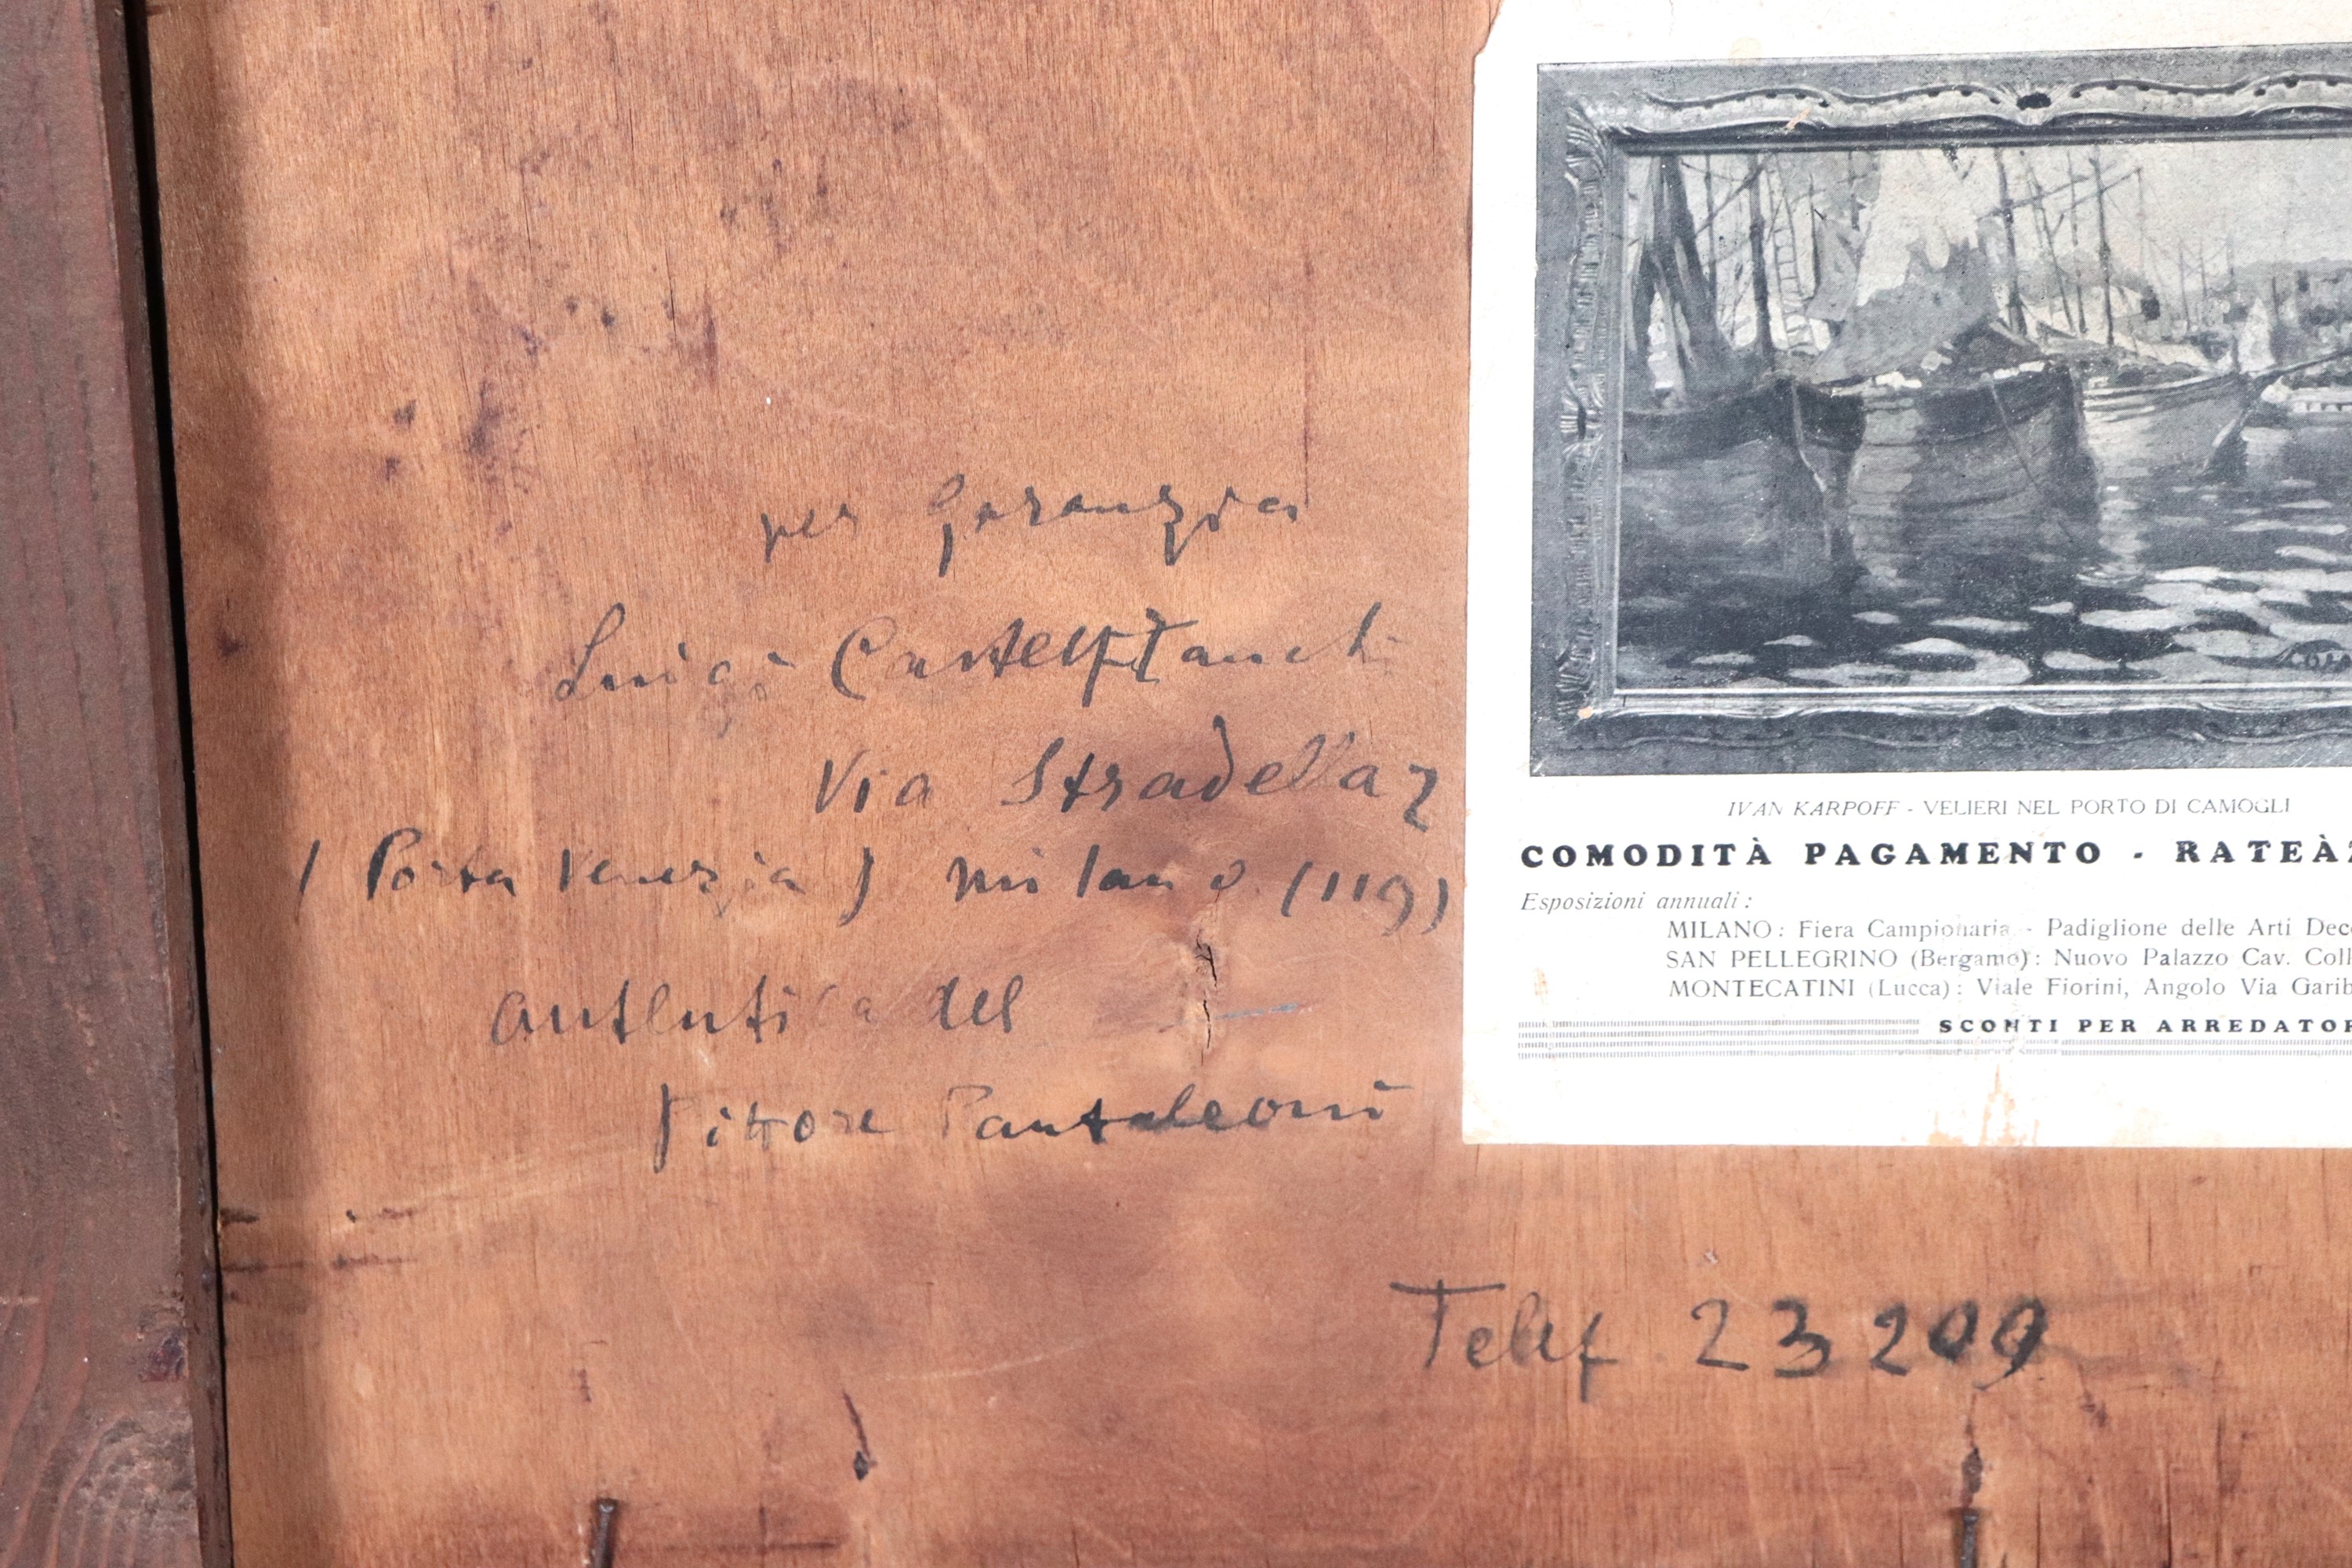 per garanzia
Luigi Castelfranchi
Via Stradella 2
(Porta Venezia) Milano (119)
autentica del
Pittore Pantaleoni
Telef 23209
IVAN KARPOFF - VELIERI NEL PORTO DI CAMOGLI
COMODITÀ PAGAMENTO - RATEÀ
Esposizioni annuali:
MILANO: Fiera Campionaria - Padiglione delle Arti Deco
SAN PELLEGRINO (Bergamo): Nuovo Palazzo Cav. Coll
MONTECATINI (Lucca): Viale Fiorini, Angolo Via Garib
SCONTI PER ARREDATOR